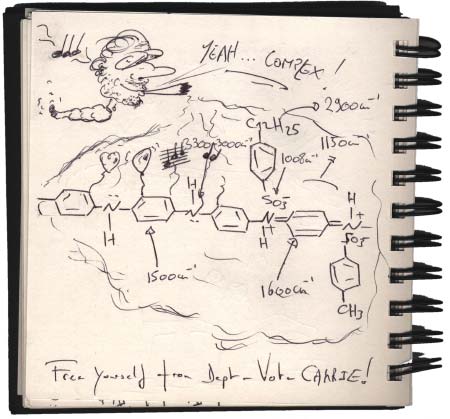 YEAH... COMPLEX!
2900cm⁻¹
C12H25
1150cm⁻¹
3300-3000cm⁻¹
1008cm⁻¹
H
H
SO3⁻
N
N
N
N
H
H
+
+
SO3⁻
1500cm⁻¹
1600cm⁻¹
CH3
Free Yourself from Dept - Vote CARRIE!